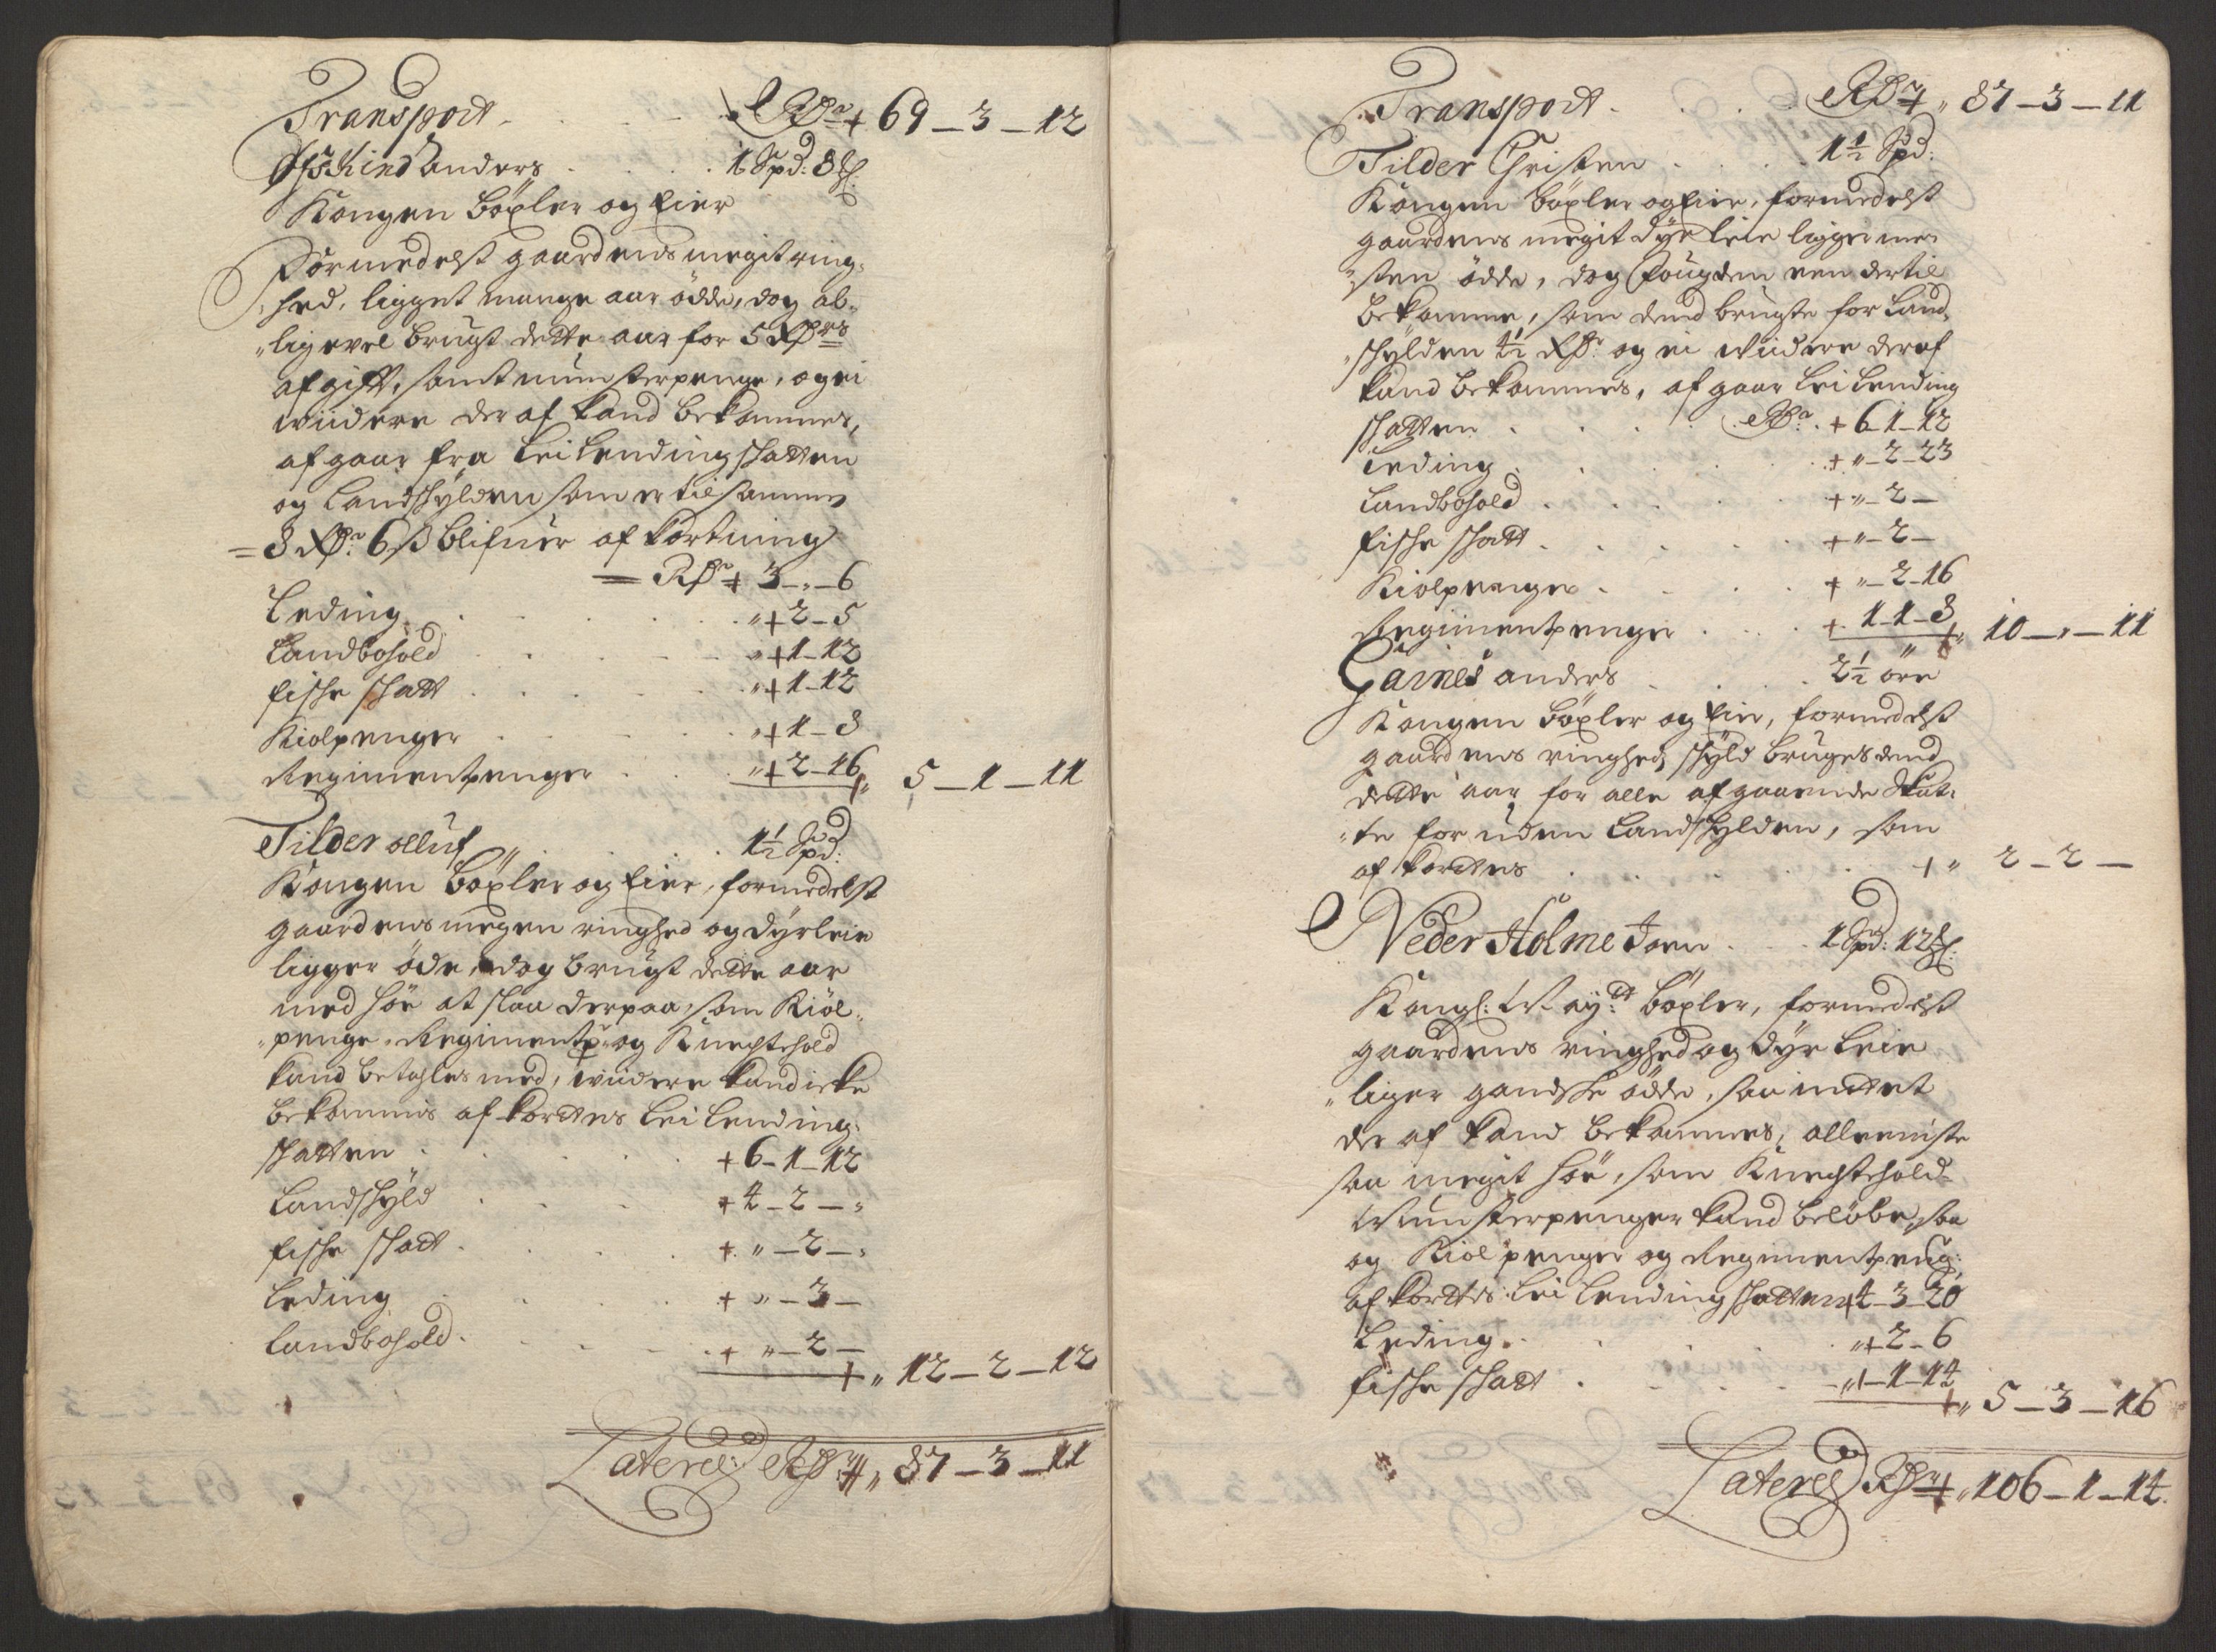 Transport . . . . Rdr + 69 – 3 – 12
Schind anders . . . . 1 Spd: 8 ℔
Kongen böxler og Eier
Formedelst gaardens megit ring-
hed, ligget mange aar ödde, dog al-
ligevel brugt dette aar for 5 Rdrs
afgift, samt munsterpenge, og ei
wiidere der af kand bekommes,
afgaar fra Leilendingschatten
og Landschylden som er tilsammen
= 8 Rdr 6 ß blifuer afkortning
= Rdr + 3 – „ – 6
Leding . . . . „ + 2 – 5
Landbohold . . . . „ + 1 – 12
fische schatt . . . . „ + 1 – 12
Kiolpenger . . . . „ + 1 – 8
Regimentpenger . . . „ + 2 – 16 + „ 5 – 1 – 11
Tilder olluf . . . . 1½ Spd:
Kongen böxler og Eier, formedelst
gaardens megen ringhed og dyrleie
ligger öde, dog brugt dette aar
med höe at slaa derpaa, som Kiöl-
penge, Regimentp: og Knechtehold
kand betahles med, wiidere kand icke
bekommis afkortes Leilending-
schatten . . . . + 6 – 1 – 12
Landschyld . . . . + 4 – 2 – „
fische schatt . . . . + „ – 2 – „
Leding . . . . + „ – 3 –
Landbohold . . . . + „ – 2 –
+ „ 12 – 2 – 12
Lateres Rdr + „ 87 – 3 – 11
Transport . . . . Rdr + „ 87 – 3 – 11
Tilder Christen . . . . 1½ Spd:
Kongen böxler og Eier, formedelst
gaardens megit dyre leie ligger me-
sten ödde, dog fougden een dertil
bekomme, som dend brugte for Land-
schylden 4½ Rdr og ei wiidere deraf
kand bekommes, afgaar Leilending
schatten . . . . Rdr + 6 – 1 – 12
Leding . . . . + „ – 2 – 23
Landbohold . . . . + „ – 2 –
fische schatt . . . . + „ – 2 –
Kiolpenger . . . . + „ – 2 – 16
Regimentpenger . . . . + 1 – 1 – 8 + „ 10 – „ – 11
Garnes anders . . . . 2½ öre
Kongen böxler og Eier, formedelst
gaardens ringhed, schyld bruges dend
dette aar for alle afgaaende Skat-
te for uden Landschylden, som
afkortes . . . . + „ 2 – 2 –
Neder Holme Joen . . . . 1 Spd: 12 ℔:
Kongl: May:tt böxler, formedelst
gaardens ringhed og dyre leie
liger gandske ödde, saa indtet
der af kand bekommes, alleeniste
saa megit höe, som Knechtehold
Munsterpenger kand belöbe, saa
og Kiolpenger og Regimentpeng:
afkortes Leilendingschatten + 4 – 3 – 20
Leding . . . . „ + 2 – 6
fische schatt . . . . „ + 1 – 14 + „ 5 – 3 – 16
Lateres Rdr + „ 106 – 1 – 14